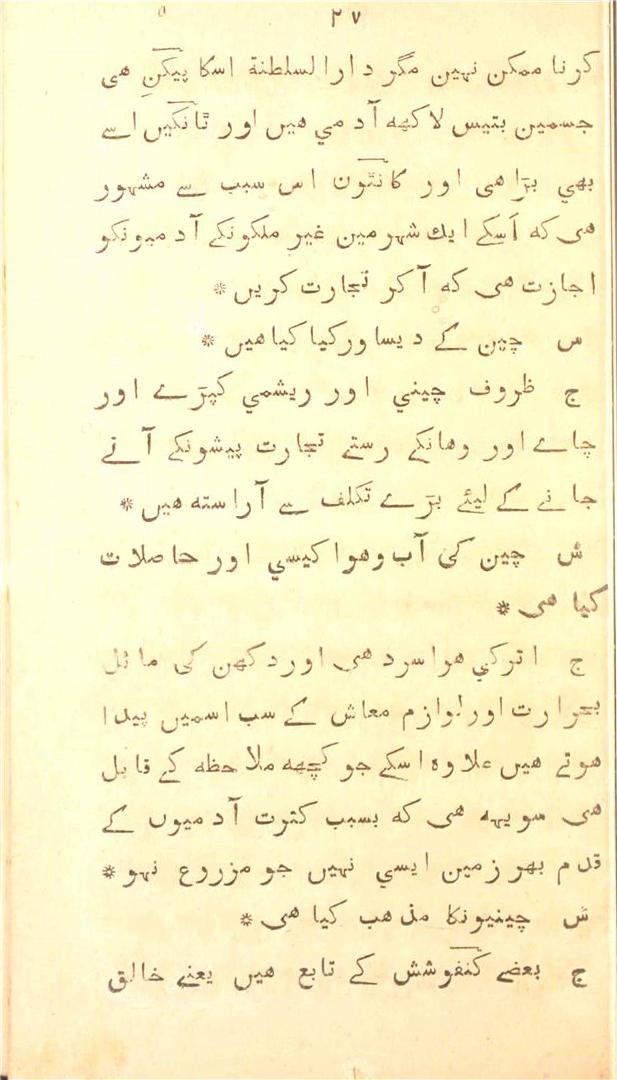 ۲۷
کرنا ممکن نہین مگر دارالسلطنة اسکا پیکنِ هی
جسمین بتیس لاکهه آدمي هیں اور ٹانکیں اسے
بهي بڑا هی اور کانٹون اس سبب سے مشہور
هی که اَسکے ایك شہرمین غیر ملکونکے آدمیونکو
اجازت هی که آکر تجارت کریں *
س چین کے دیساور کیا کیا هیں *
ج ظروف چیني اور ریشمي کپڑے اور
چاے اور وهانکے رستے تجارت پیشونکے آنے
جانے کے لیئے بڑے تکلف سے آراسته هیں *
ش چین کی آب وهوا کیسي اور حاصلات
کیا هی *
ج اترکي هوا سرد هی اور دکهن کی مائل
بحرارت اور لوازم معاش کے سب اسمیں پیدا
هوتے هیں علاوه اسکے جو کچهه ملاحظه کے قابل
هی سویہه هی که بسبب کثرت آدمیوں کے
قدم بهر زمین ایسي نہیں جو مزروع نہو *
ش چینیونکا مذهب کیا هی *
ج بعضے کنفوشش کے تابع هیں یعنے خالق